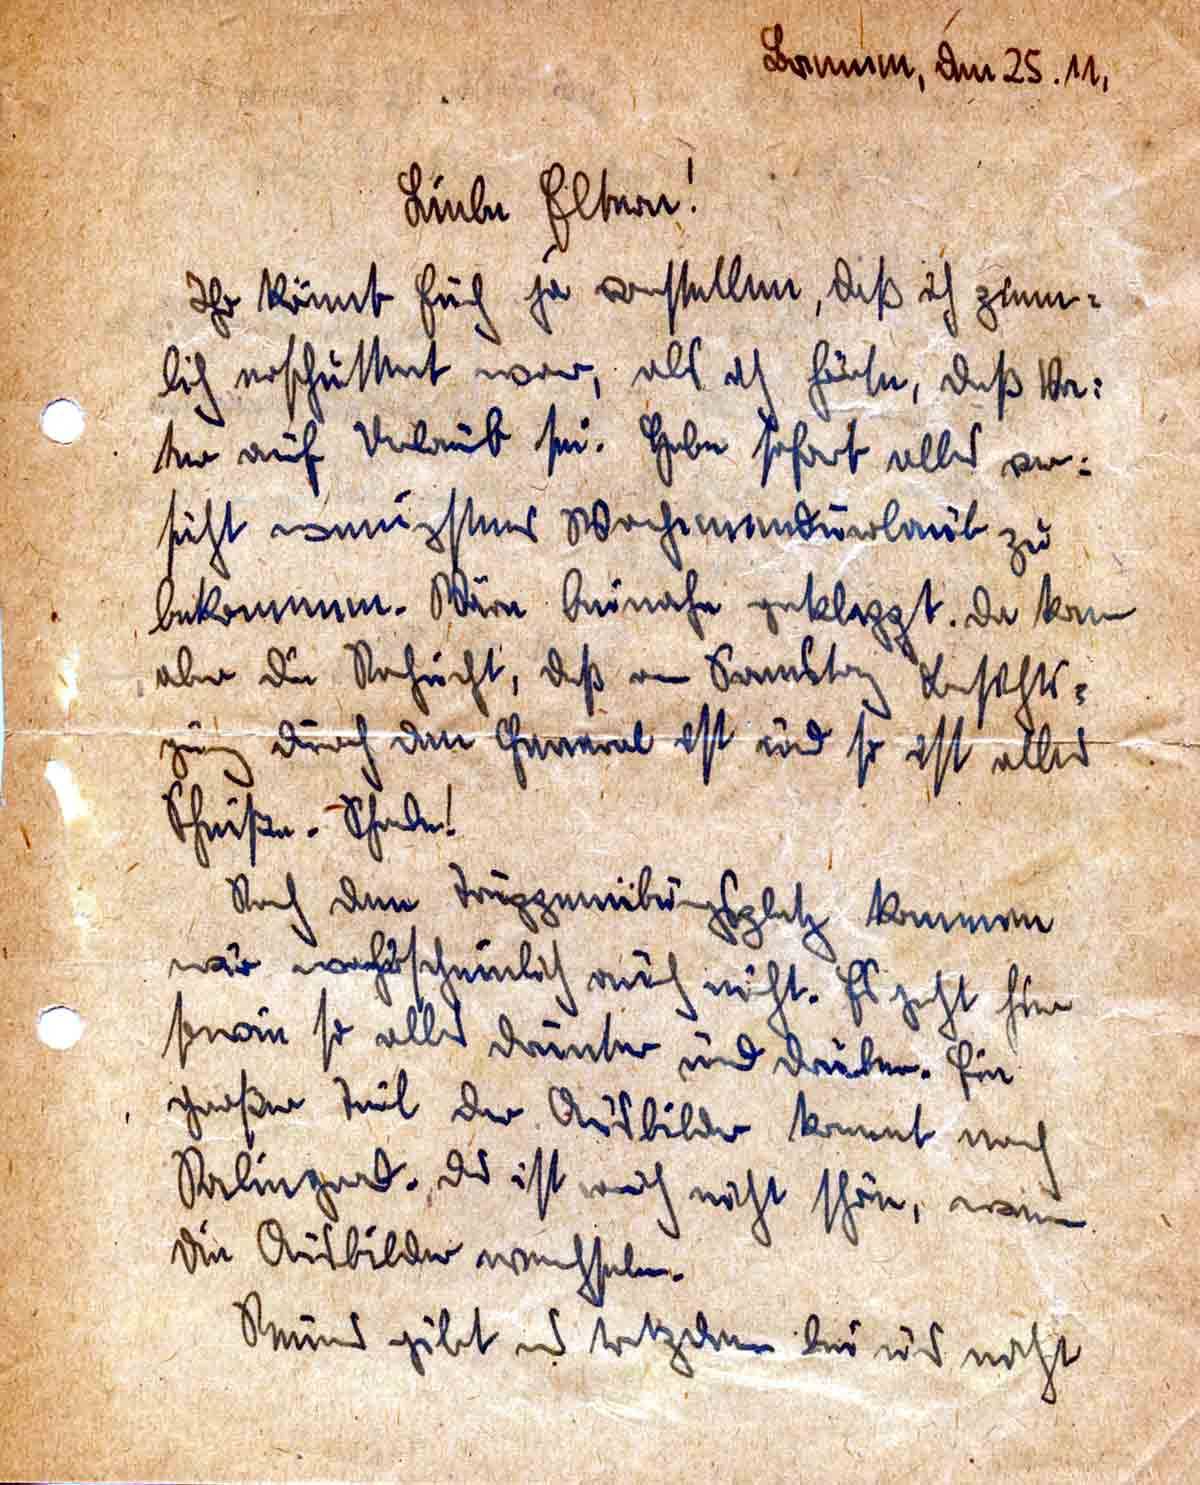 Bremen, den 25.11.
Liebe Eltern!
Ihr könnt Euch ja vorstellen, daß ich ziem-
lich erschüttert war, als ich hörte, daß Va-
ter auf Urlaub sei. Habe sofort alles ver-
sucht wenigstens Wochenendurlaub zu
bekommen. Wäre beinahe geklappt. Da kam
aber die Nachricht, daß am Samstag Besichti-
gung durch den General ist und so ist alles
Scheiße. Schade!
Nach dem Truppenübungsplatz kommen
wir wahrscheinlich auch nicht. Es geht hier
sowie so alles drunter und drüber. Ein
großer Teil der Ausbilder kommt nach
. Das ist auch nicht schön, wenn
die Ausbilder wechseln.
Neues gibt es trotzdem bei uns nicht